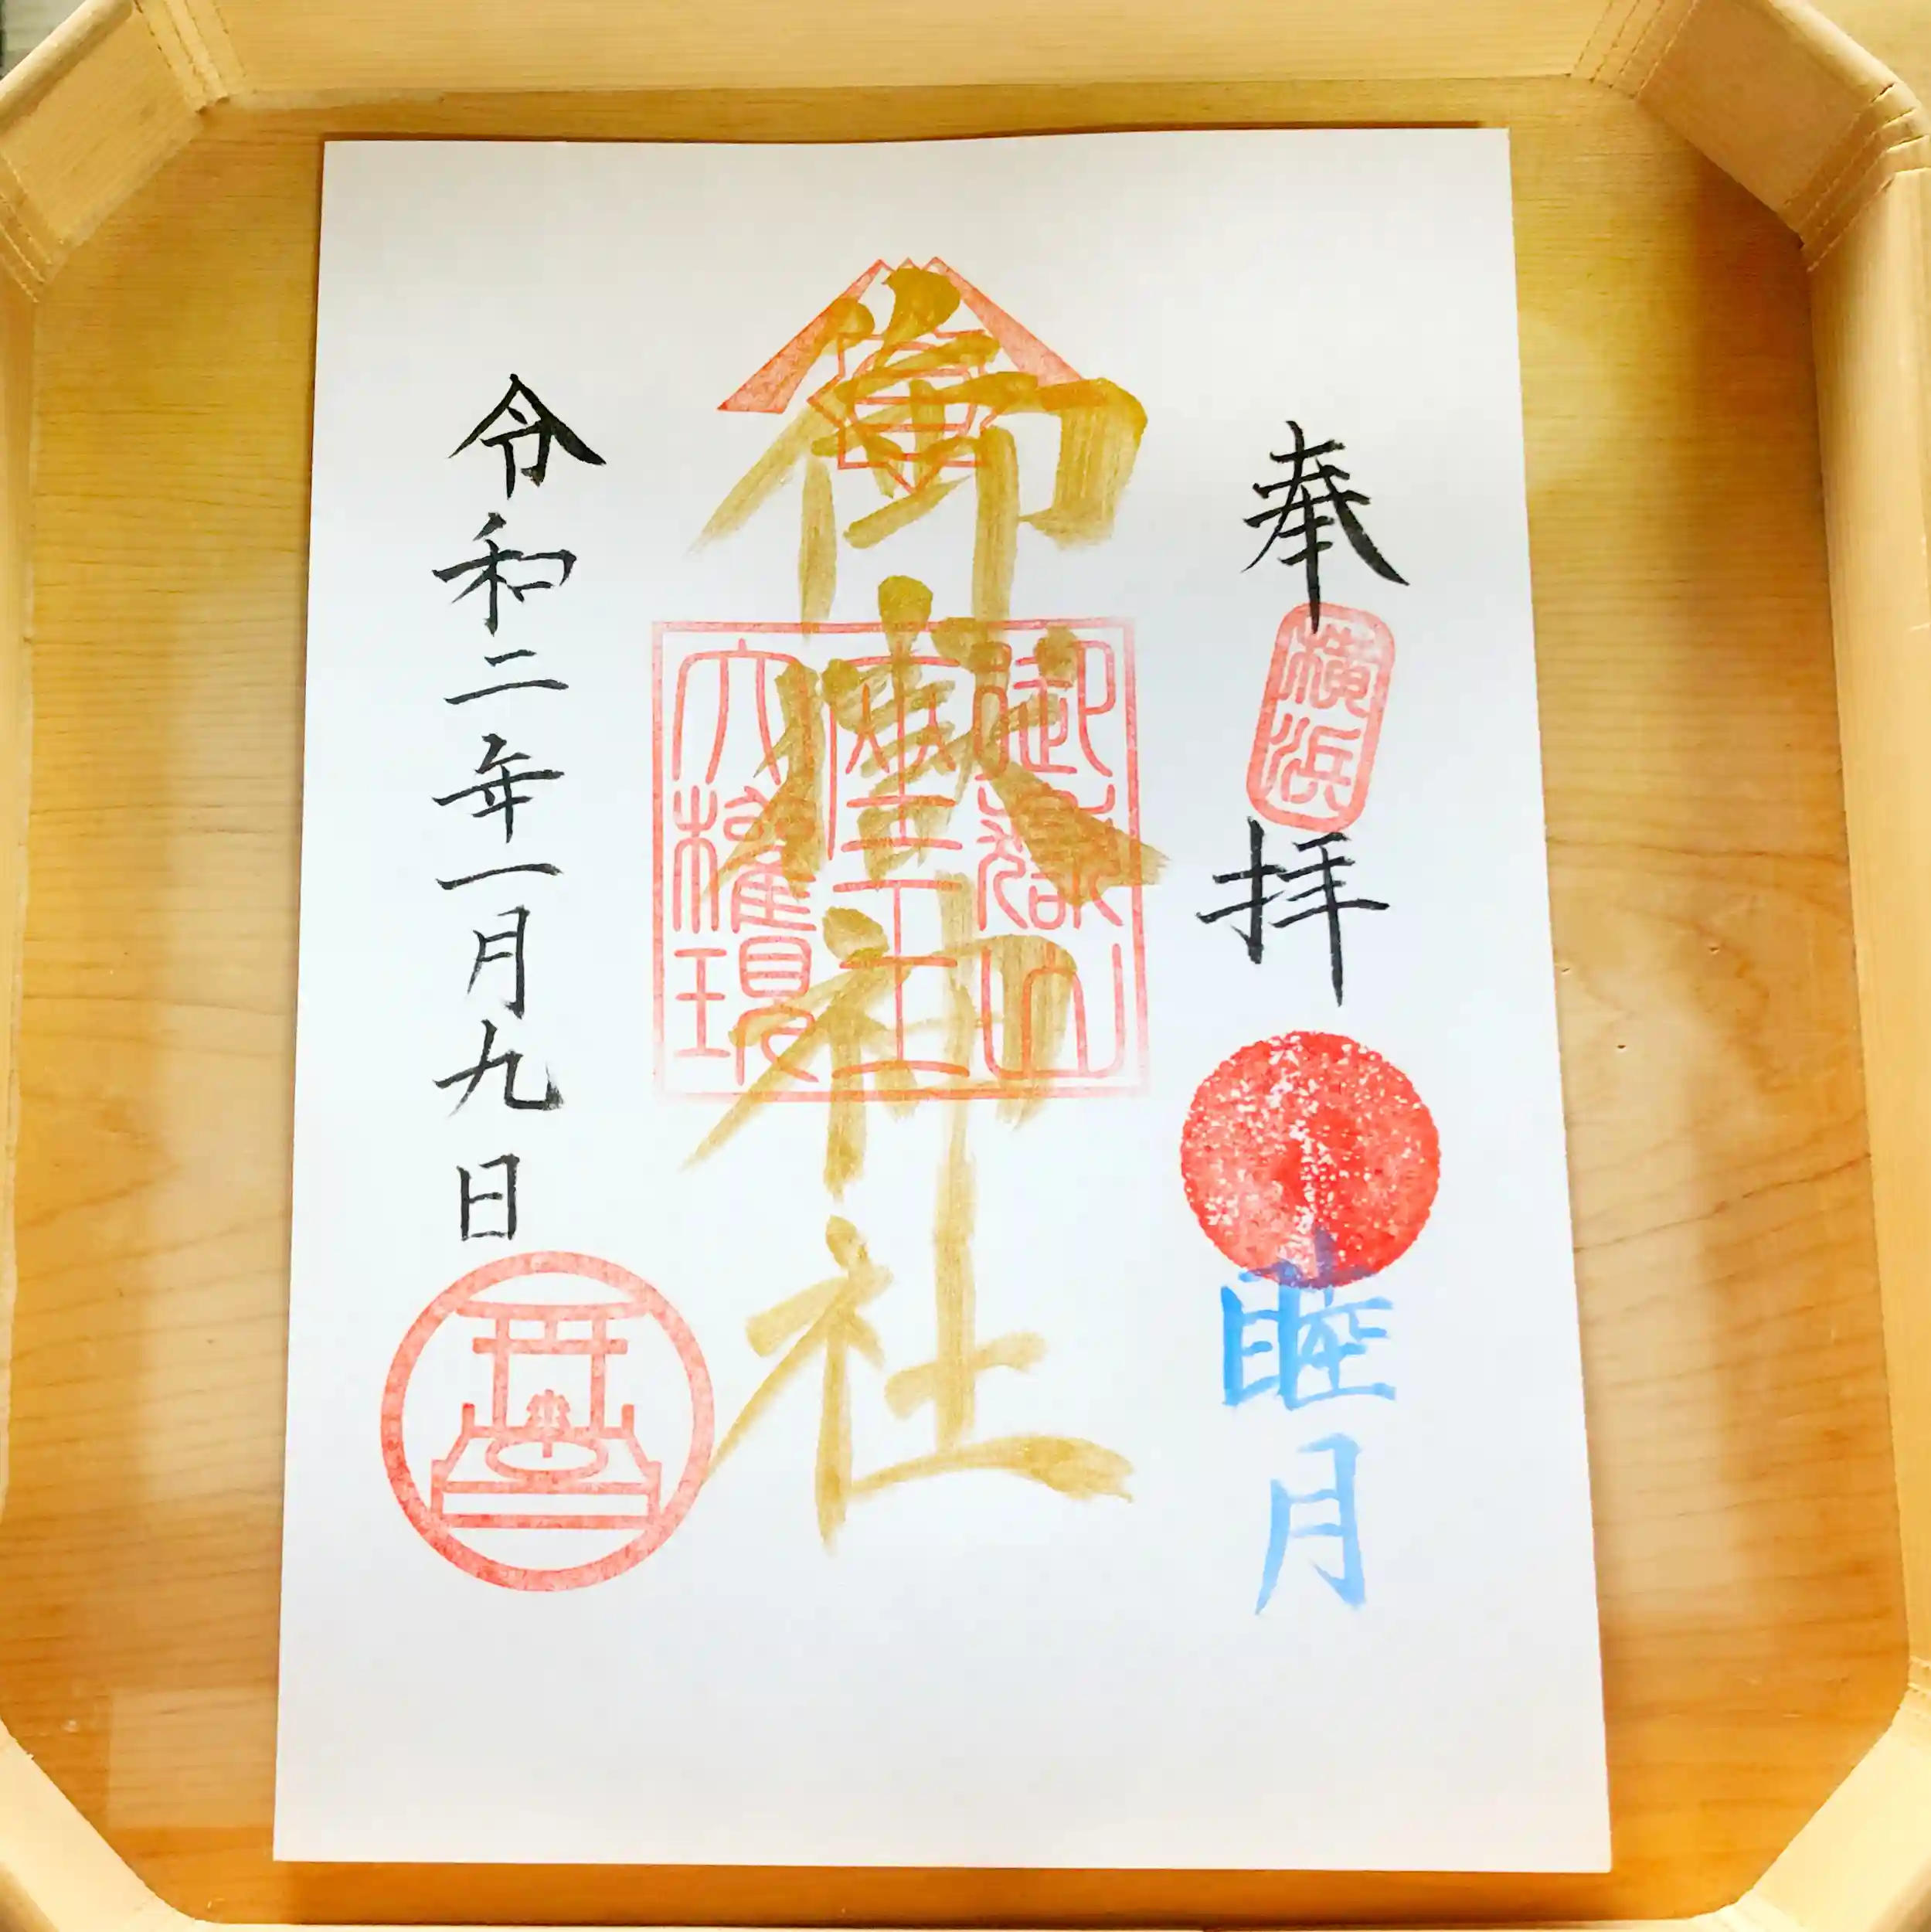 奉拝
横浜
睦月
御嶽神社
御嶽山
座王
大権現
令和二年一月九日